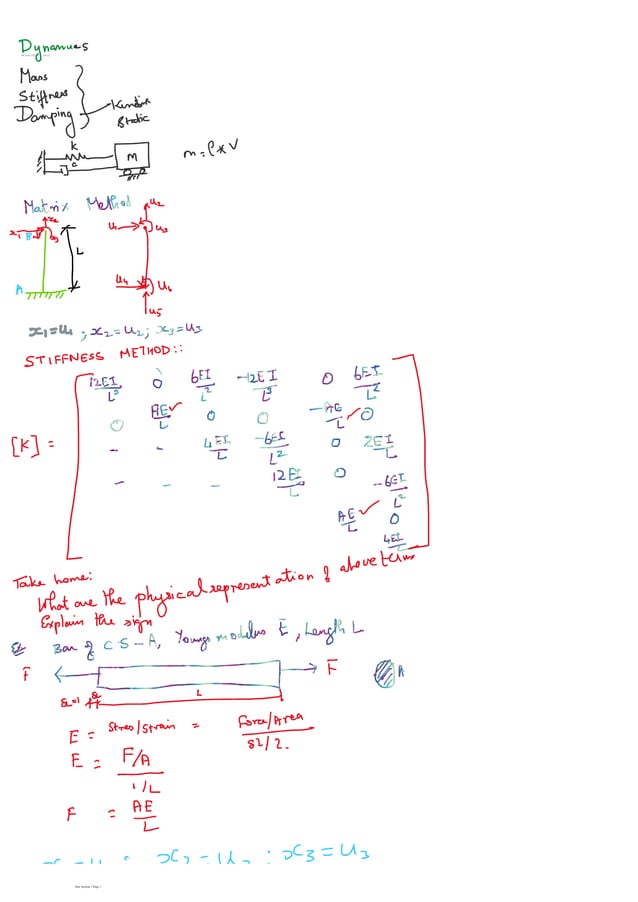 Dynamics
Mass
Stiffness
Damping
Static
K
C
M
m = ρ * V
Matrix Method
x2
x1 B x3
L
A
u2
u1 u3
u4 u6
u5
x1 = u1 ; x2 = u2 ; x3 = u3
STIFFNESS METHOD::
[K] =
12EI/L³ 0 6EI/L² -12EI/L³ 0 6EI/L²
0 AE/L ✓ 0 0 -AE/L ✓ 0
- - 4EI/L -6EI/L² 0 2EI/L
- - - 12EI/L 0 -6EI/L²
AE/L ✓ 0
4EI/L
Take home:
What are the physical representation of above terms
Explain the sign
Bar of CS-A, Youngs modulus E, Length L
F F A
δL=1 L
E = Stress/Strain = Force/Area / δL/2.
E = F/A / 1/L
F = AE/L
x2 = u2 ; x3 = u3